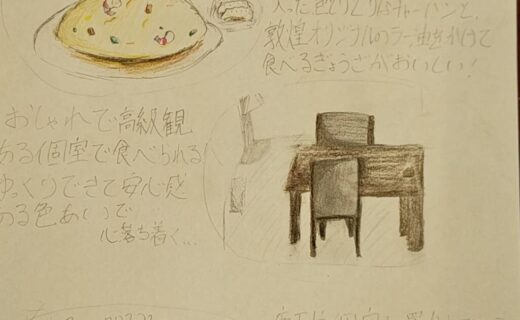 入った色とりどりなチャーハンと、
敦煌オリジナルのラー油をかけて
食べるぎょうざがおいしい！
おしゃれで高級観
ある個室で食べられる
ゆっくりできて安心感
のる色あいで
心落ち着く…